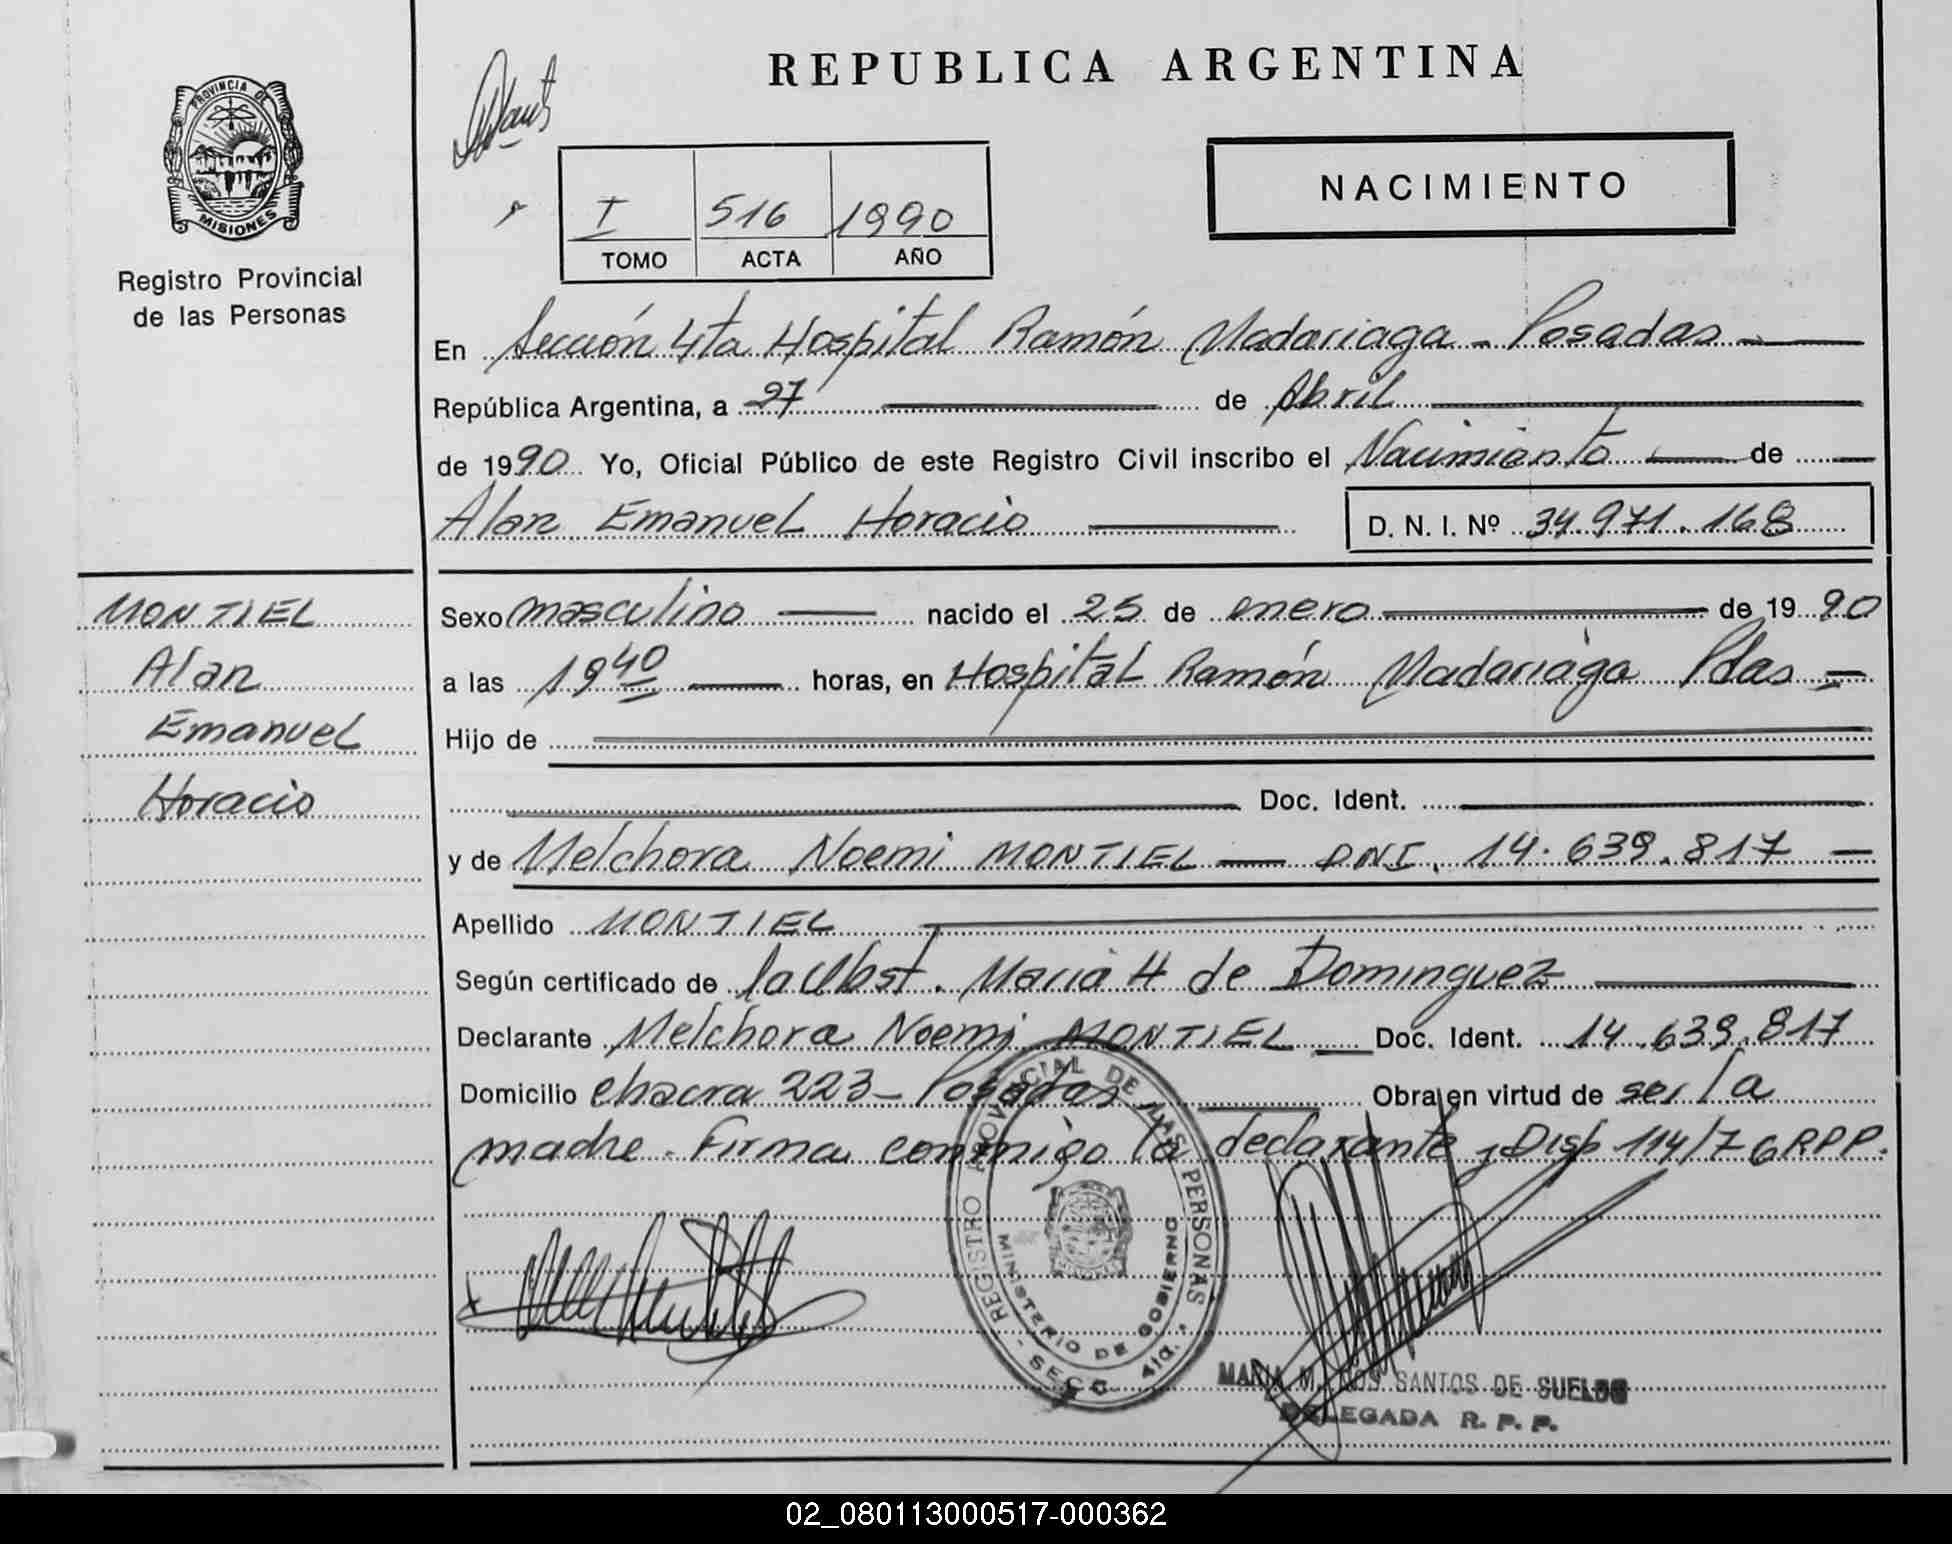 REPUBLICA ARGENTINA
PROVINCIA DE
MISIONES
Registro Provincial
de las Personas
I 516 1990
TOMO ACTA AÑO
NACIMIENTO
En Sección 4ta Hospital Ramón Madariaga - Posadas
República Argentina, a 27 de Abril
de 1990 Yo, Oficial Público de este Registro Civil inscribo el Nacimiento de
Alan Emanuel Horacio D. N. I. Nº 34.971.168
MONTIEL
Alan
Emanuel
Horacio
Sexo masculino nacido el 25 de enero de 1990
a las 19 40 horas, en Hospital Ramón Madariaga Pdas
Hijo de
Doc. Ident.
y de Melchora Noemi MONTIEL DNI. 14.639.817
Apellido MONTIEL
Según certificado de la Obst. Maria H de Dominguez
Declarante Melchora Noemi MONTIEL Doc. Ident. 14.639.817
Domicilio chacra 223 - Posadas Obra en virtud de ser la
madre. Firma conmigo la declarante, Disp 114/76 RPP.
REGISTRO PROVINCIAL DE LAS PERSONAS
MINISTERIO DE GOBIERNO
- SECC. 4ta. -
MARIA M. DOS SANTOS DE SUELDO
DELEGADA R. P. P.
02_080113000517-000362